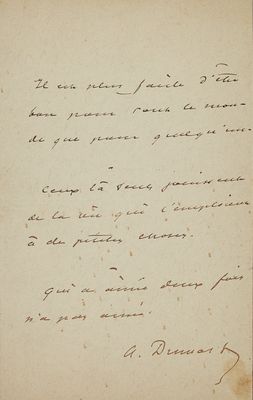 Il est plus facile d'être
bon pour tout le mon-
de que pour quelqu'un.
Ceux là seuls jouissent
de la vie qui l'emploient
à de petites choses.
Qui a aimé deux fois
n'a pas aimé.
A. Dumas f